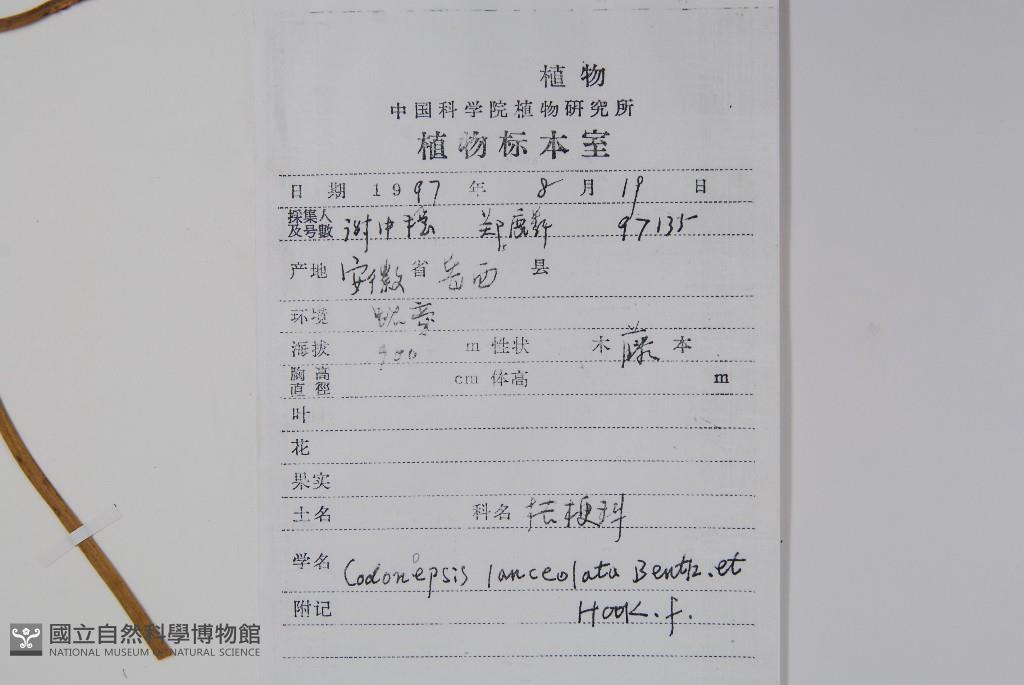 植物
中国科学院植物研究所
植物标本室
日 期 1997 年 8 月 19 日
採集人及号數 97135
产地 安徽省岳西 县
环境
海拔 900 m 性状 木藤本
胸高直徑 cm 体高 m
叶
花
果实
土名 科名 桔梗科
学名 Codonopsis lanceolata Benth. et
附记 Hook. f.
國立自然科學博物館
NATIONAL MUSEUM OF NATURAL SCIENCE